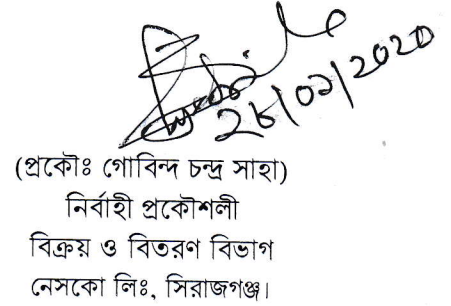 ২৮/০২/২০২০
(প্রকৌঃ গোবিন্দ চন্দ্র সাহা)
নির্বাহী প্রকৌশলী
বিক্রয় ও বিতরণ বিভাগ
নেসকো লিঃ, সিরাজগঞ্জ।